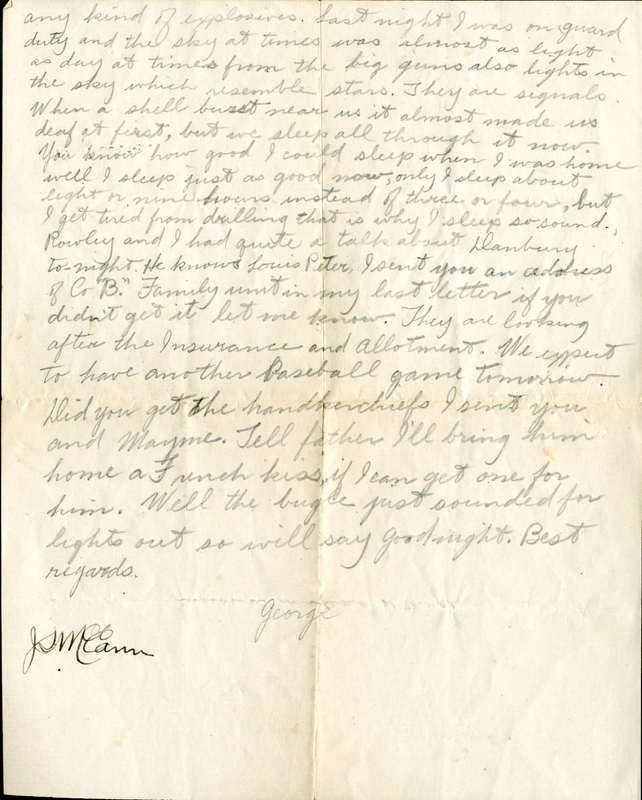 any kind of explosives. Last night I was on guard
duty and the sky at times was almost as light
as day at times from the big guns also lights in
the sky which resemble stars. They are signals.
When a shell burst near us it almost made us
deaf at first, but we sleep all through it now.
You know how good I could sleep when I was home
well I sleep just as good now, only I sleep about
eight or nine hours instead of three or four, but
I get tired from drilling that is why I sleep so sound.
Rowley and I had quite a talk about Danbury
to-night. He knows Louis Peter. I sent you an address
of Co "B." Family unit in my last letter if you
didn't get it let me know. They are looking
after the Insurance and Allotment. We expect
to have another Baseball game tomorrow
Did you get the handkerchiefs I sent you
and Mayme. Tell father I'll bring him
home a French kiss, if I can get one for
him. Well the bugle just sounded for
lights out so will say good night. Best
regards.
George
J S McCann